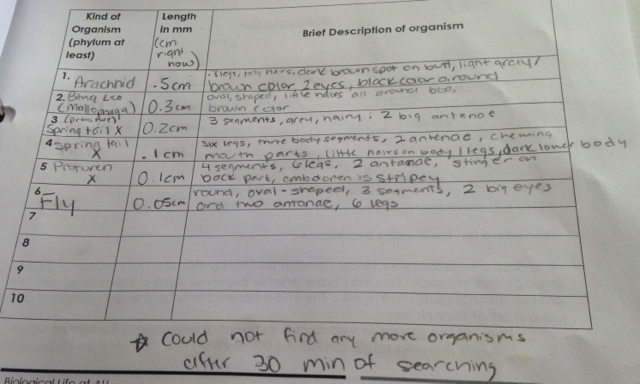 Kind of Organism (phylum at least)
Length in mm (cm right now)
Brief Description of organism
1. Arachnid .5cm 8 legs, tiny hairs, dark brown spot on butt, light grey/
brown color 2 eyes, black color around
2. Lice (Mallophaga) 0.3cm oval, shaped, little hairs all around
brown color
3 (primitive) Springtail X 0.2cm 3 segments, grey, hairy, 2 big antenae
4 Springtail X .1cm six legs, three body segments, 2 antenae, chewing
mouth parts, little hairs on body/legs, dark lower body
5 Proturen X 0.1cm 4 segments, 6 legs, 2 antanae, stinger on
back part, is stripey
6 Fly 0.05cm round, oval-shaped, 3 segments, 2 big eyes
and two antanae, 6 legs
7
8
9
10
☆ Could not find any more organisms
after 30 min of searching